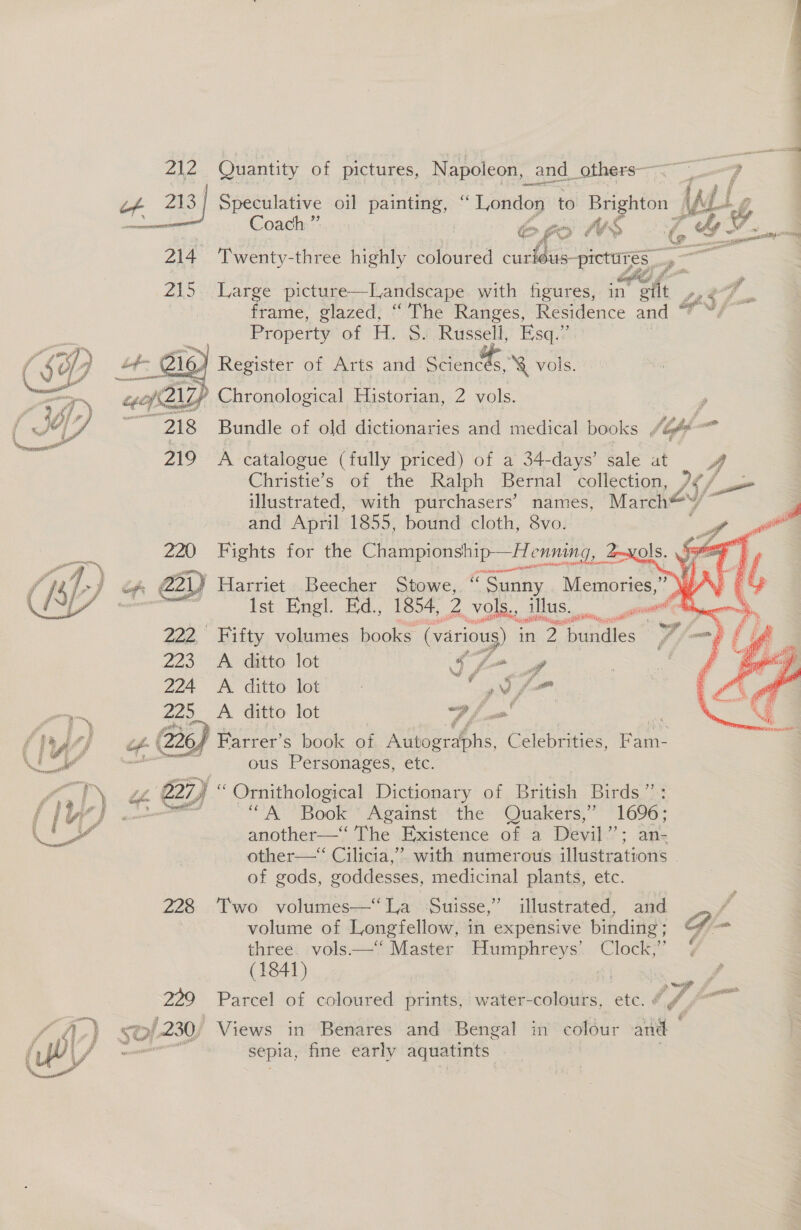 212 Quantity of pictures, Napoleon, and others—
213 Speculative oil painting, “London to Brighton
Coach”
214 Twenty-three highly coloured curious pictures
215 Large picture—Landscape with figures, in gilt
frame, glazed, “The Ranges, Residence and
Property of H. S. Russell, Esq.”
216 Register of Arts and Sciences, vols.
217 Chronological Historian, 2 vols.
218 Bundle of old dictionaries and medical books
219 A catalogue (fully priced) of a 34-days’ sale at
Christie’s of the Ralph Bernal collection,
illustrated, with purchasers’ names, March
and April 1855, bound cloth, 8vo.
220 Fights for the Championship—Henning, 2 vols.
221 Harriet Beecher Stowe, “Sunny Memories,”
1st Engl. Ed., 1854, 2 vols., illus.
222 Fifty volumes books (various) in 2 bundles
223 A ditto lot
224 A ditto lot
225 A ditto lot
226 Farrer’s book of Autographs, Celebrities, Fam-
ous Personages, etc.
227 “Ornithological Dictionary of British Birds”:
“A Book Against the Quakers,” 1696;
another—“The Existence of a Devil”; an-
other—“Cilicia,” with numerous illustrations
of gods, goddesses, medicinal plants, etc.
228 Two volumes—“La Suisse,” illustrated, and
volume of Longfellow, in expensive binding;
three vols.—“Master Humphreys’ Clock,”
(1841)
229 Parcel of coloured prints, water-colours, etc.
230 Views in Benares and Bengal in colour and
sepia, fine early aquatints